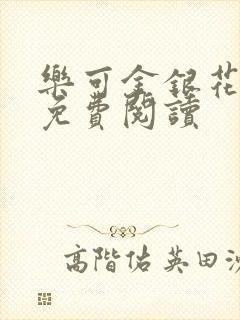 樂可金銀花
免費閱讀
高階佑英田沙